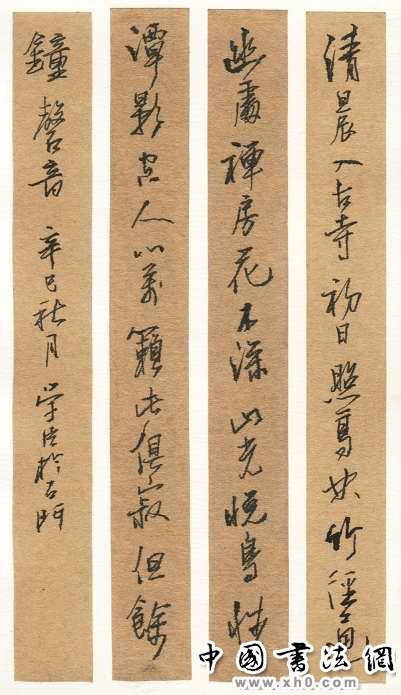 清晨入古寺初日照高林竹徑通
幽處禪房花木深山光悅鳥性
潭影空人心萬籟此俱寂但餘
鐘磬音 辛巳秋月 学於門
中國書法網
www.xh0.com